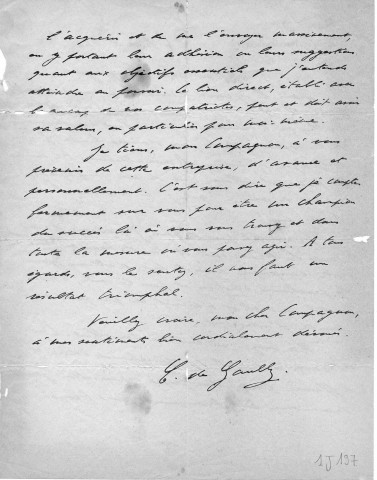 l'acquérir et de me l'envoyer massivement,
en y portant leur adhésion ou leurs suggestions
quant aux objectifs essentiels que j'entends
atteindre au pouvoir. Ce lien direct, établi avec
beaucoup de nos compatriotes, peut et doit avoir
sa valeur, en particulier pour moi-même.
Je tiens, mon Compagnon, à vous
prévenir de cette entreprise, d'avance et
personnellement. C'est vous dire que je compte
fermement sur vous pour être un champion
du succès là où vous vous trouvez et dans
toute la mesure où vous pouvez agir. A tous
égards, vous le sentez, il nous faut un
résultat triomphal.
Veuillez croire, mon cher Compagnon,
à mes sentiments bien cordialement dévoués.
C. de Gaulle.
1J197